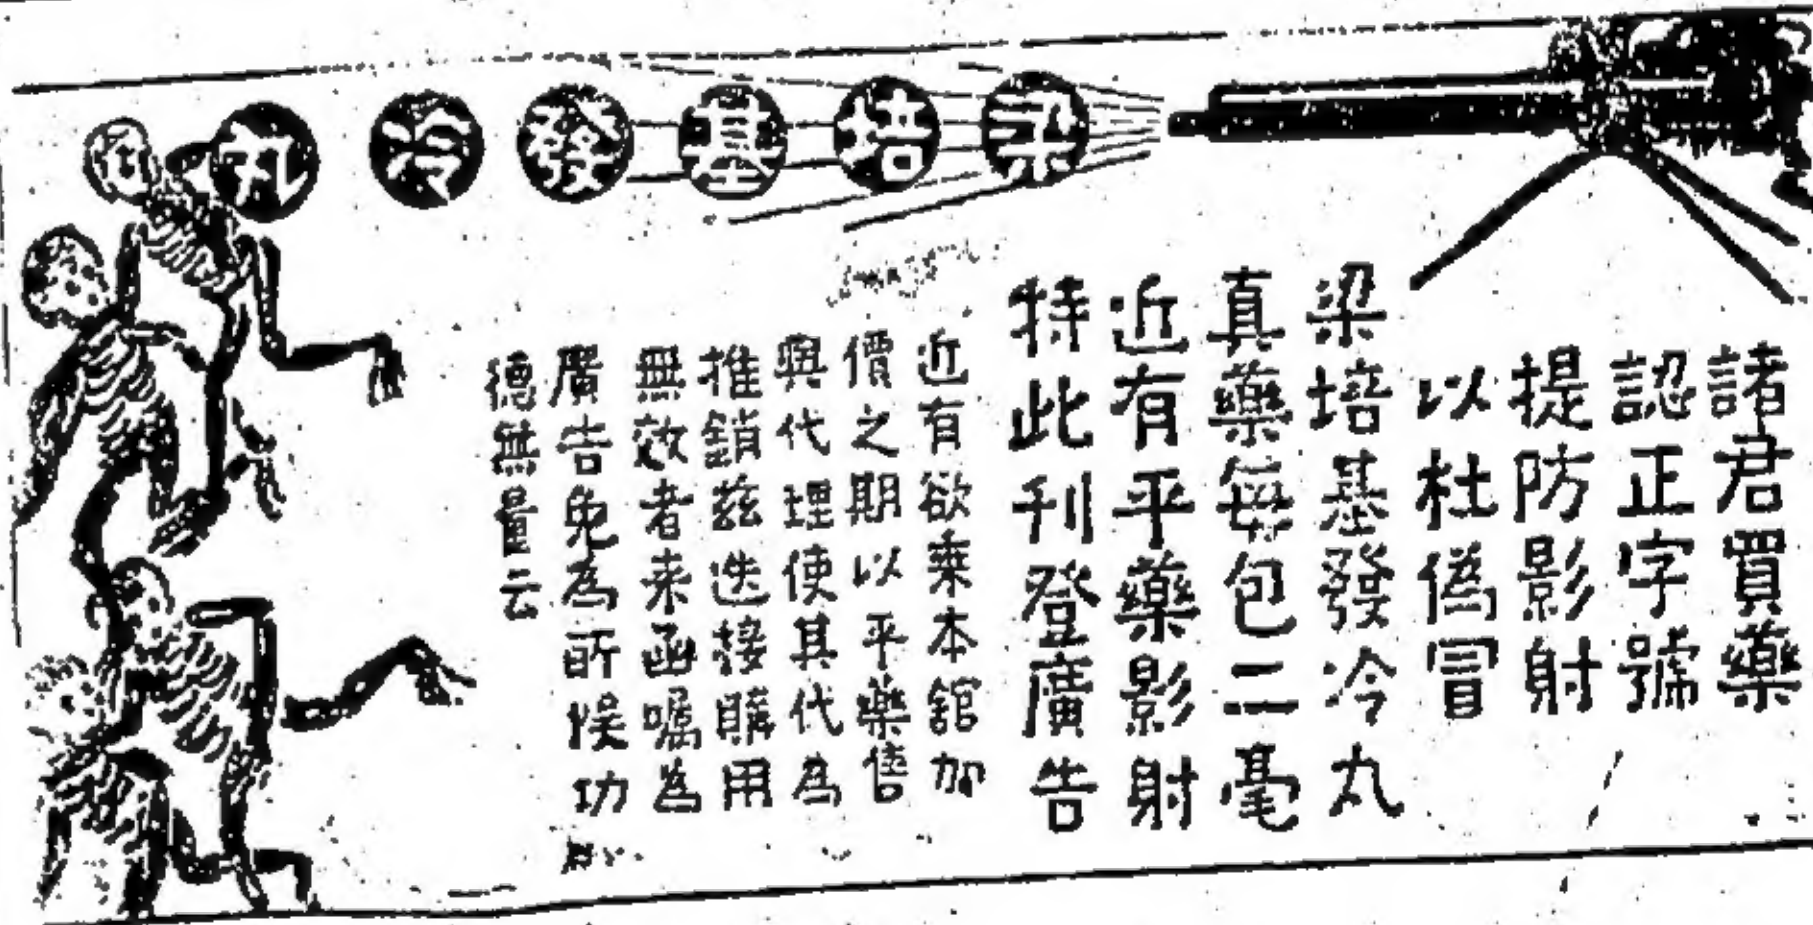 梁培基發冷丸
諸君買藥
認正字號
提防影射
以杜偽冒
梁培基發冷丸
真藥每包二毫
近有平藥影射
特此刊登廣告
近有欲乘本舘加
價之期以平藥售
與代理使其代為
推銷茲迭接購用
無效者来函嘱為
廣告免為所悮功
德無量云